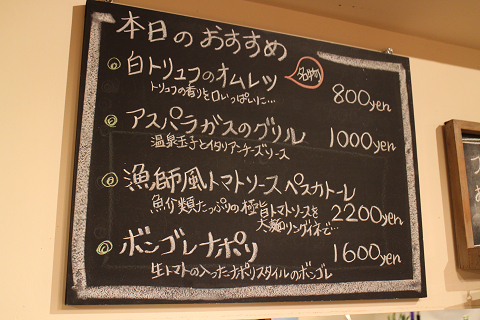 本日のおすすめ
白トリュフのオムレツ 名物 800yen
トリュフの香りを口いっぱいに…
アスパラガスのグリル 1000yen
温泉玉子とイタリアンチーズソース
漁師風トマトソースペスカトーレ
魚介類たっぷりの極旨トマトソースを 2200yen
太麺リングイネで…
ボンゴレナポリ 1600yen
生トマトの入ったナポリスタイルのボンゴレ